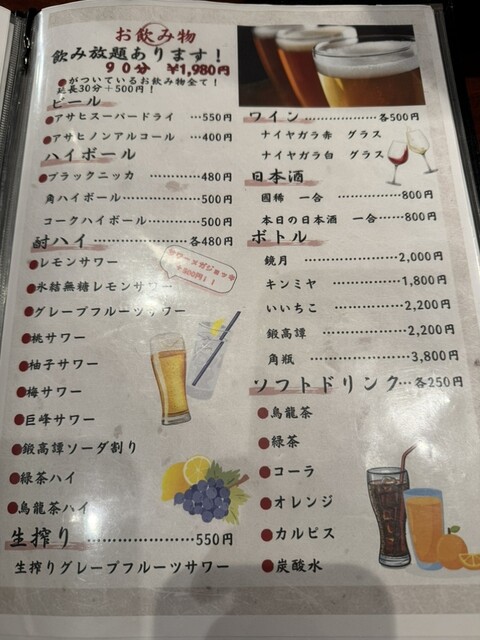 お飲み物
飲み放題あります！
90分 ¥1,980円
●がついているお飲み物全て！
延長30分＋500円！
ビール
●アサヒスーパードライ …550円
●アサヒノンアルコール …400円
ハイボール
●ブラックニッカ ………480円
角ハイボール…………500円
コークハイボール………500円
酎ハイ ……………………各480円
●レモンサワー
●氷結無糖レモンサワー
●グレープフルーツサワー
●桃サワー
●柚子サワー
●梅サワー
●巨峰サワー
●鍛高譚ソーダ割り
●緑茶ハイ
●烏龍茶ハイ
サワーメガジョッキ
＋500円！！
生搾り ………………550円
生搾りグレープフルーツサワー
ワイン………………各500円
ナイヤガラ赤 グラス
ナイヤガラ白 グラス
日本酒
國稀 一合 ……………800円
本日の日本酒 一合……800円
ボトル
鏡月 …………………2,000円
キンミヤ ……………1,800円
いいちこ ……………2,200円
鍛高譚 ………………2,200円
角瓶 …………………3,800円
ソフトドリンク…各250円
●烏龍茶
●緑茶
●コーラ
●オレンジ
●カルピス
●炭酸水